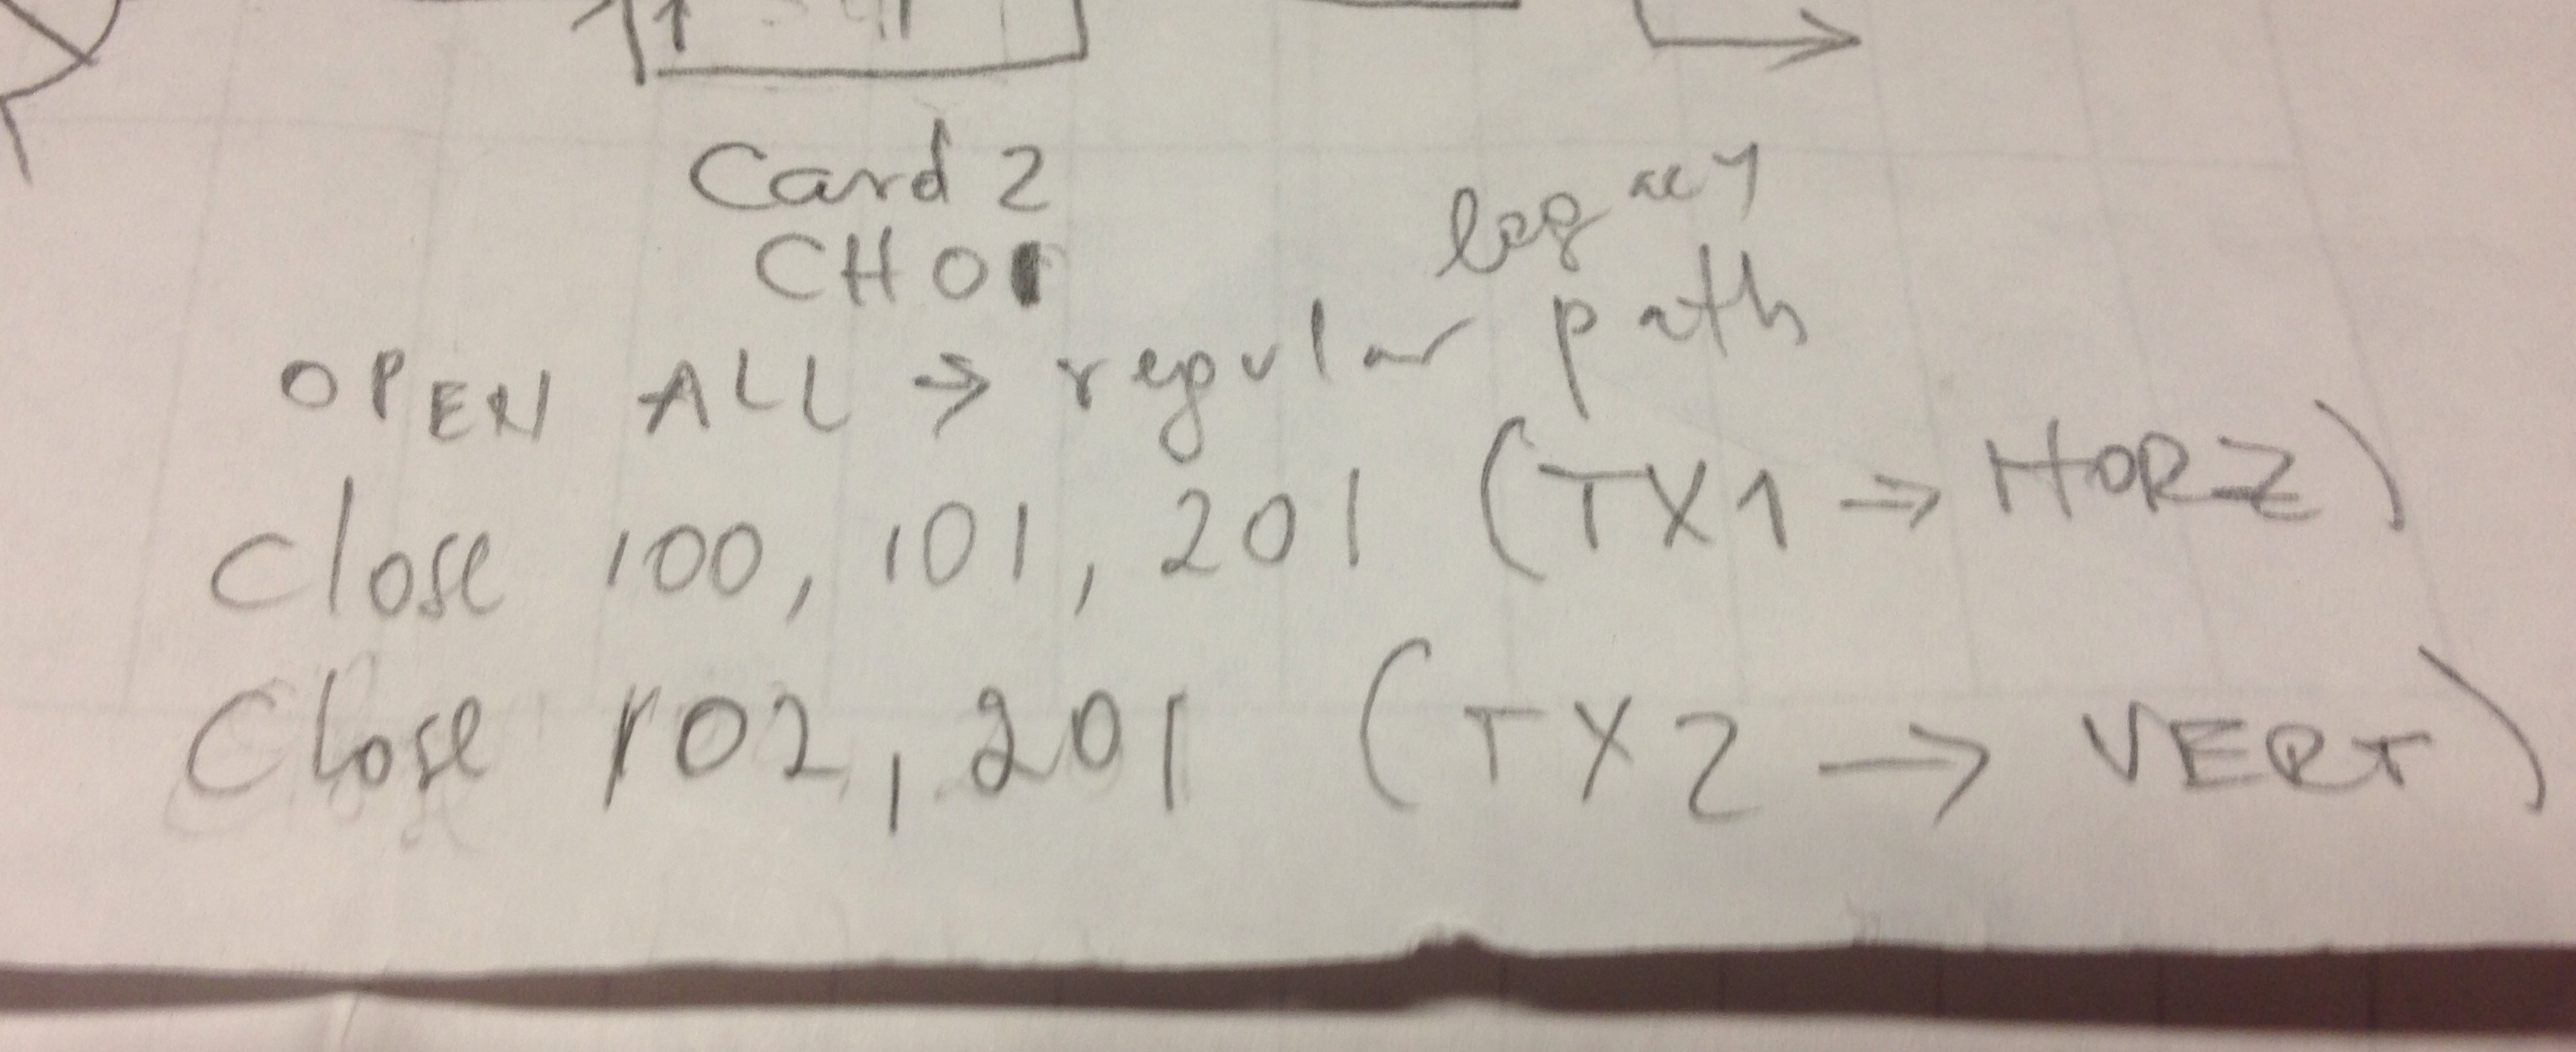 Card 2
CH 01
legacy
OPEN ALL → regular path
Close 100, 101, 201 (TX1 → HORZ)
Close 102, 201 (TX2 → VERT)